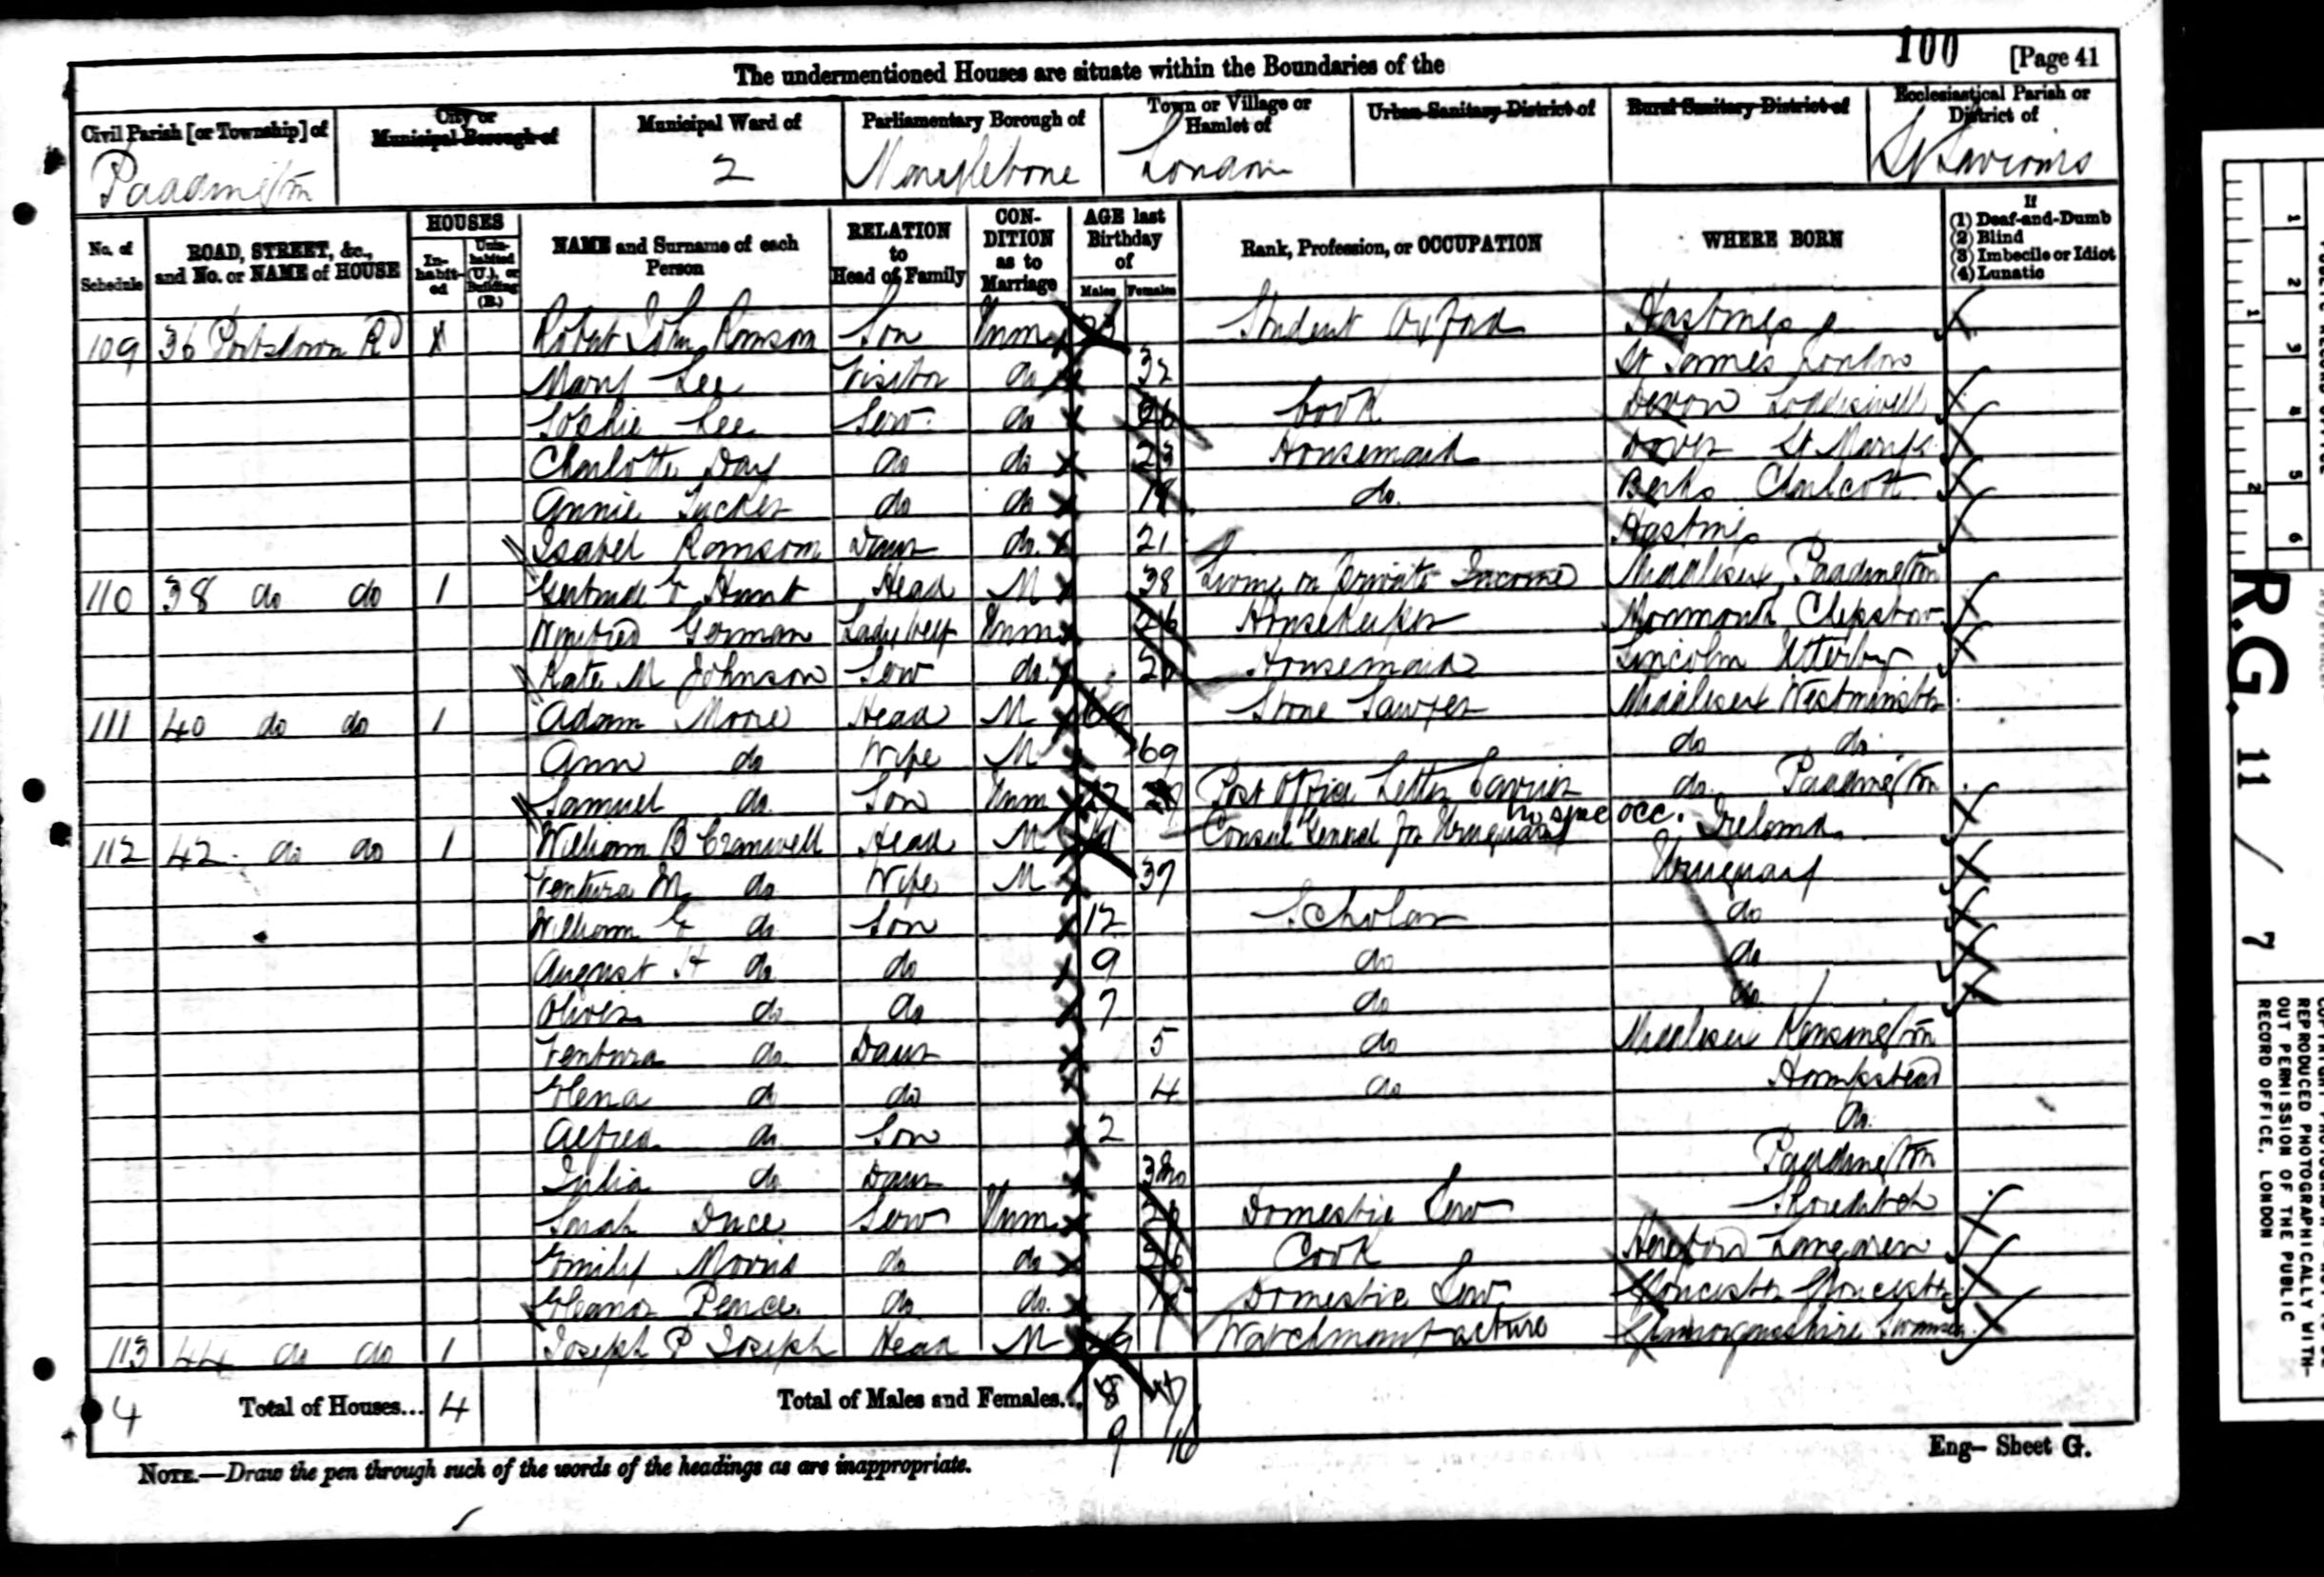 100 [Page 41
The undermentioned Houses are situate within the Boundaries of the
Civil Parish [or Township] of City or Municipal Borough of Municipal Ward of Parliamentary Borough of Town or Village or Hamlet of Urban Sanitary District of Rural Sanitary District of Ecclesiastical Parish or District of
Paddington 2 Marylebone London St Saviours
No. of Schedule ROAD, STREET, &c., and No. or NAME of HOUSE HOUSES Inhabited Uninhabited (U.), or Building (B.) NAME and Surname of each Person RELATION to Head of Family CONDITION as to Marriage AGE last Birthday of Males Females Rank, Profession, or OCCUPATION WHERE BORN If (1) Deaf-and-Dumb (2) Blind (3) Imbecile or Idiot (4) Lunatic
109 36 Portsdown Rd Robert John Ranson Son Unm Student Oxford Hastings
Mary Lee Visitor do 32 St James London
Lee Serv. do 26 Cook Devon Loddiswell
Charlotte Day do do 23 Housemaid Dover St Marys
Annie Tucker do do do. Berks
Isabel Ranson Daur do. 21 Hastings
110 38 do do 1 Gertrude E Hunt Head M 38 Living on Private Income Middlesex Paddington
Winifred Gorman Lady help Unm 26 Housekeeper Monmouth Chepstow
Kate M Johnson Serv do. Housemaid Lincoln Utterby
111 40 do do 1 Adam Moore Head M 69 Stone Sawyer Middlesex Westminster
Ann do Wife M 69 do do.
Samuel do. Son Unm 27 Post Office Letter Carrier do. Paddington
112 42. do do 1 William B Cranwell Head M Consul General for Uruguay no spec occ. Ireland
Ventura M do Wife M 37 Uruguay
William G do Son 12 Scholar do
August H do do 9 do do
Oliver do do 7 do do
Ventura do Daur 5 do Middlesex Kensington
Elena do do 4 do Hampstead
Alfred do Son 2 do.
Julia do Daur 3mo Paddington
Sarah Dace Serv Unm Domestic Serv Shoreditch
Emily Morris do do 26 Cook Hereford
Eleanor Pence. do do. Domestic Serv Gloucester Gloucester
113 44 do do 1 Joseph P Joseph Head M Watchmanufacture Glamorganshire Swansea
4 Total of Houses... 4 Total of Males and Females... 8 17
9 16
NOTE.—Draw the pen through such of the words of the headings as are inappropriate.
Eng— Sheet G.
R.G. 11 / 7
REPRODUCED PHOTOGRAPHICALLY WITH-
OUT PERMISSION OF THE PUBLIC
RECORD OFFICE, LONDON
1 2 3 4 5 6
1 2